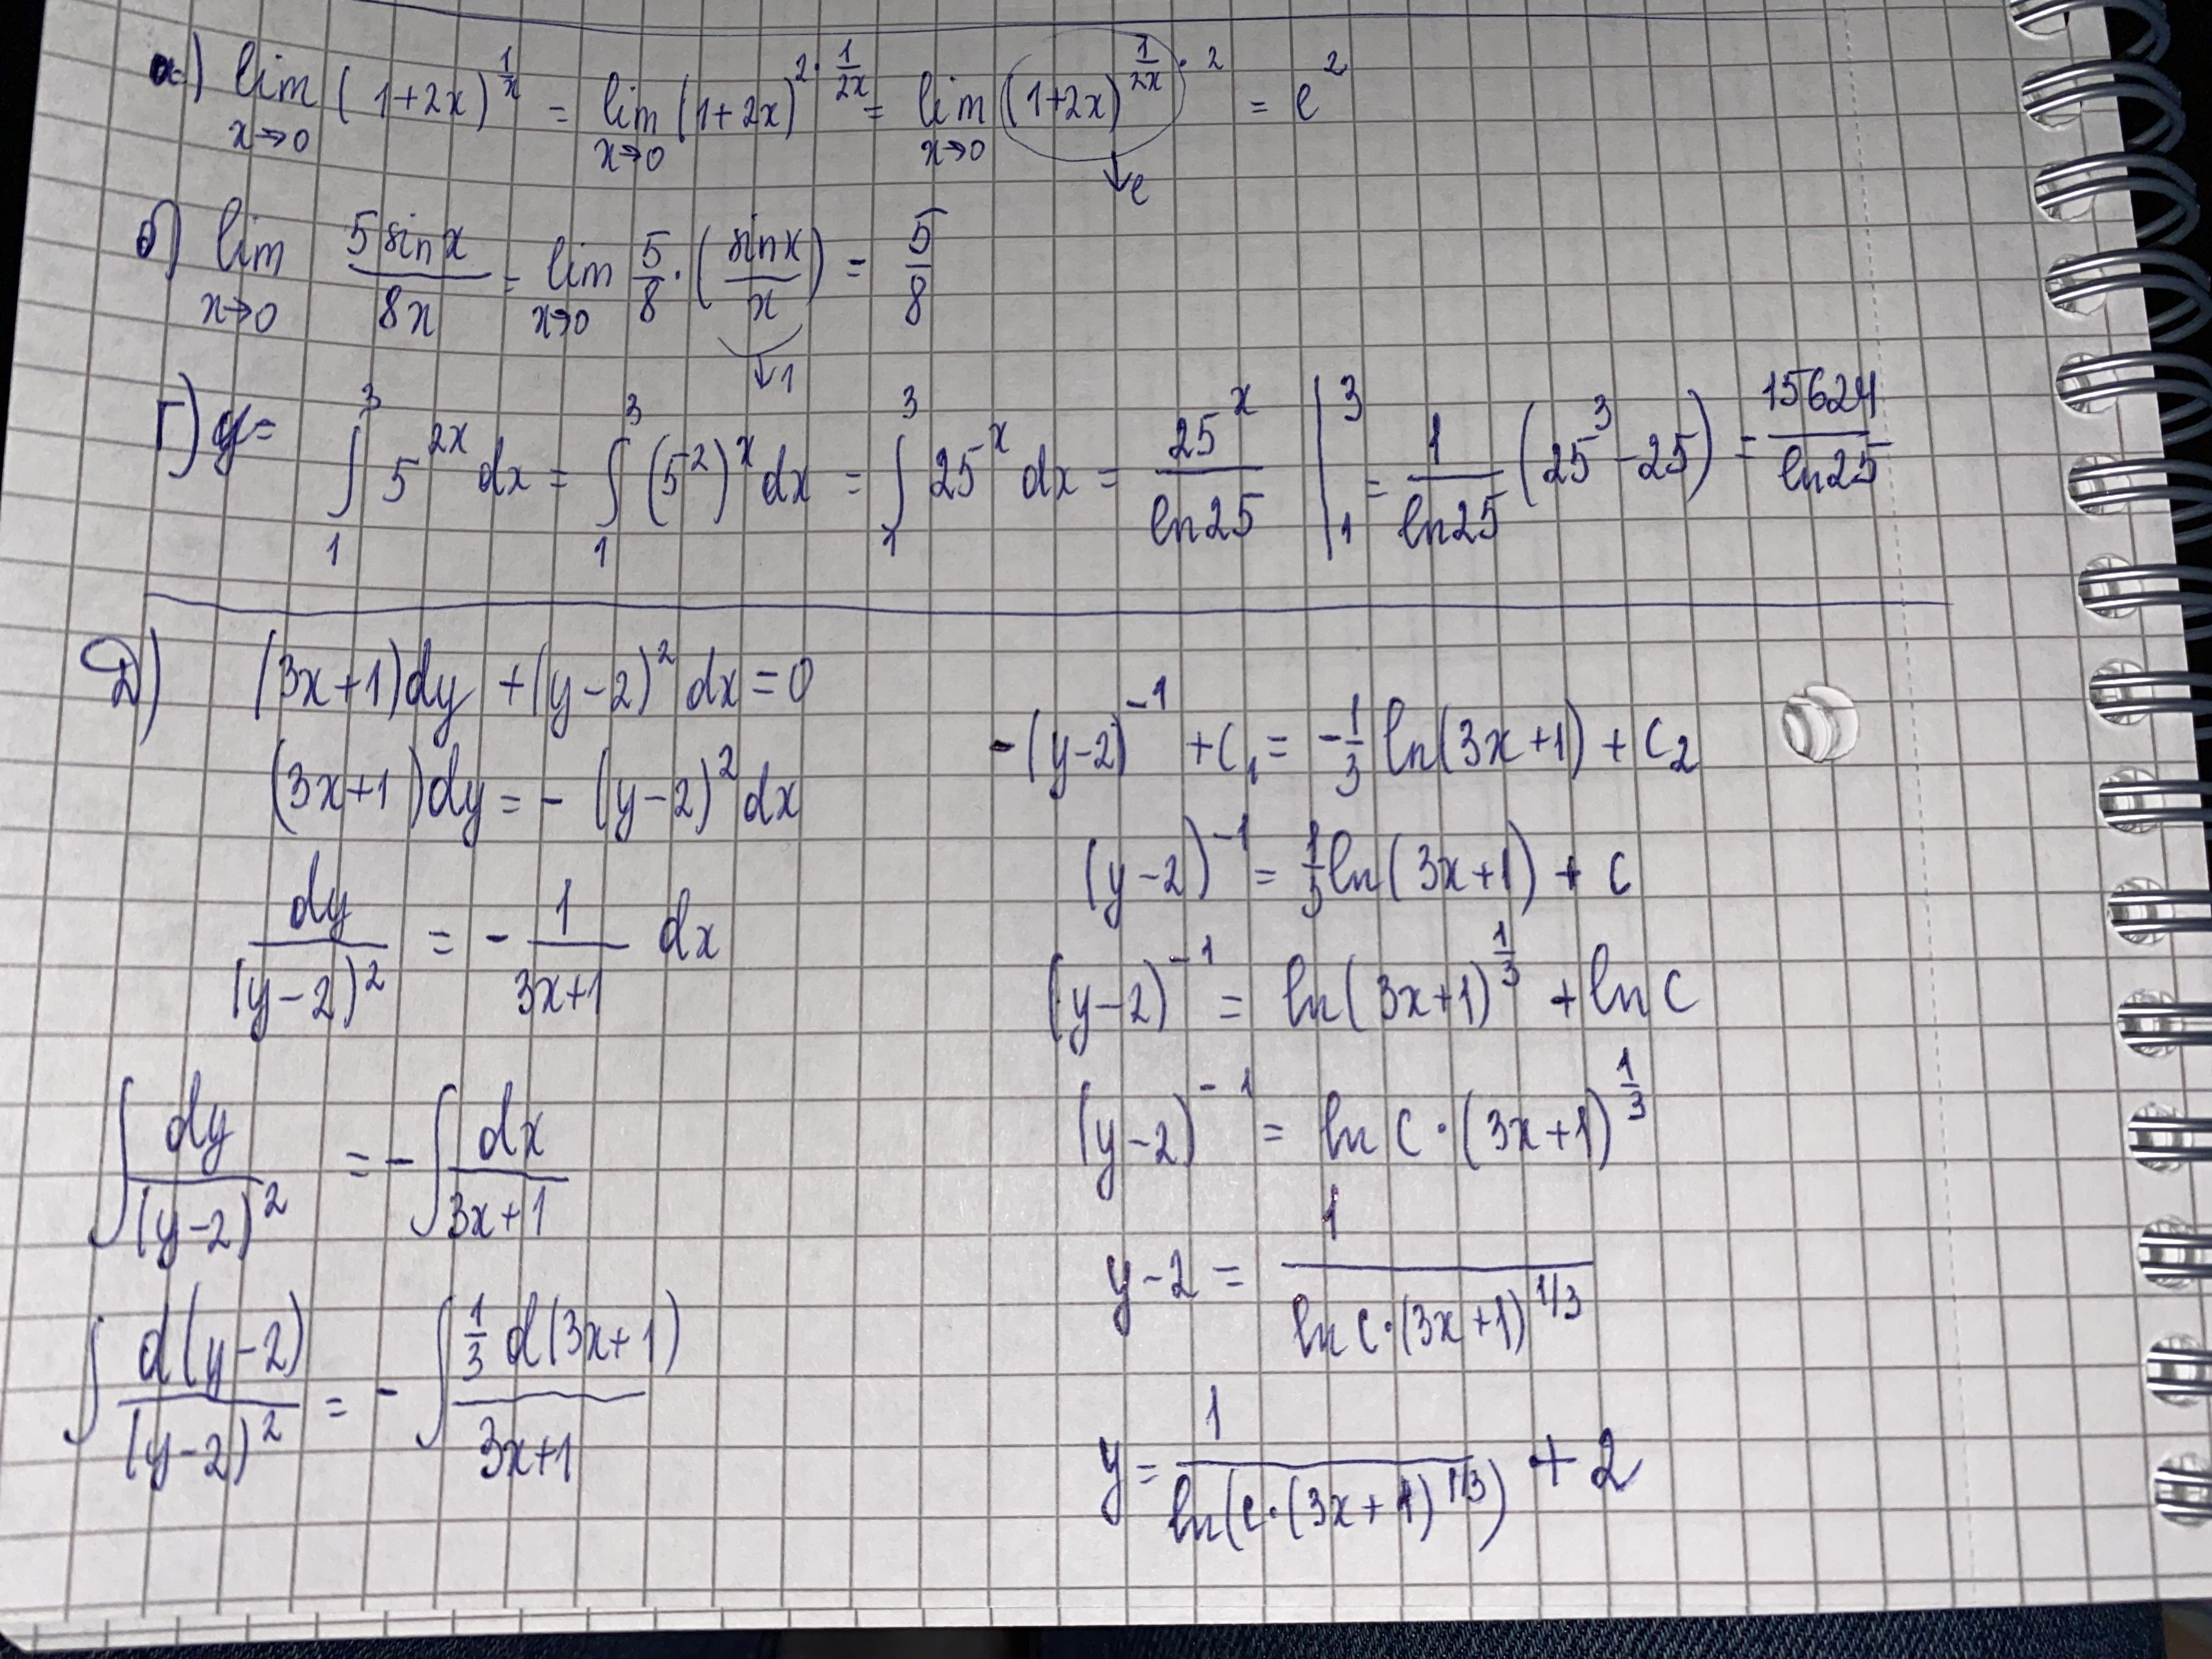 а) lim x→0 (1+2x)^(1/x) = lim x→0 (1+2x)^(2·1/2x) = lim x→0 (1+2x)^(1/2x ·2) = e^2
↓e
б) lim x→0 5 sin x / 8x = lim x→0 5/8 · (sin x / x) = 5/8
↓1
Г) y = ∫_1^3 5^(2x) dx = ∫_1^3 (5^2)^x dx = ∫_1^3 25^x dx = 25^x / ln25 |_1^3 = 1/ln25 (25^3 - 25) = 15624 / ln25
Д) (3x+1)dy + (y-2)^2 dx = 0
(3x+1)dy = - (y-2)^2 dx
dy / (y-2)^2 = - 1 / (3x+1) dx
∫ dy / (y-2)^2 = - ∫ dx / (3x+1)
∫ d(y-2) / (y-2)^2 = - ∫ 1/3 d(3x+1) / (3x+1)
-(y-2)^(-1) + C_1 = -1/3 ln(3x+1) + C_2
(y-2)^(-1) = 1/3 ln(3x+1) + C
(y-2)^(-1) = ln(3x+1)^(1/3) + ln C
(y-2)^(-1) = ln C·(3x+1)^(1/3)
y-2 = 1 / ln C·(3x+1)^(1/3)
y = 1 / ln(C·(3x+1)^(1/3)) + 2